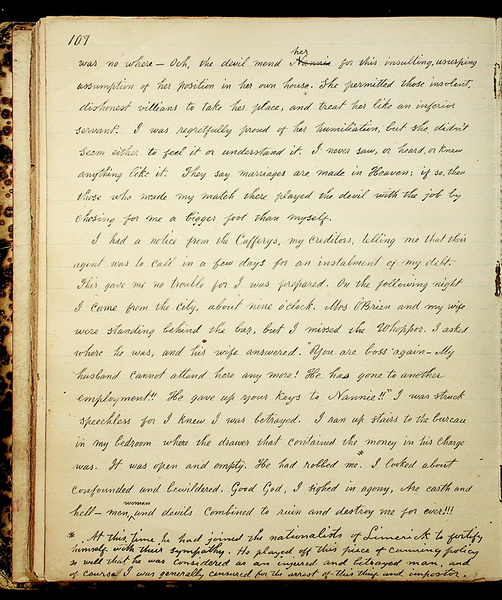 109
was no where – Och, the devil mend her Nannie for this insulting, usurping
assumption of her position in her own house. She permitted those insolent,
dishonest villians to take her place, and treat her like an inferior
servant. I was regretfully proud of her humiliation, but she didn't
seem either to feel it or understand it. I never saw, or heard, or knew
anything like it. They say marriages are made in Heaven; if so, then
those who made my match there played the devil with the job by
chosing for me a bigger fool than myself.
I had a notice from the Cafferys, my creditors, telling me that their
agent was to call in a few days for an instalment of my debt.
This gave me no trouble for I was prepared. On the following night
I came from the City, about nine o'clock. Mrs O'Brien and my wife
were standing behind the bar, but I missed the Whopper. I asked
where he was, and his wife answered. "You are boss again – My
husband cannot attend here any more! He has gone to another
employment!! He gave up your keys to Nannie!!" I was struck
speechless for I knew I was betrayed. I ran up stairs to the bureau
in my bedroom where the drawer that contained the money in his charge
was. It was open and empty. He had robbed me*. I looked about
confounded and bewildered. Good God, I sighed in agony, Are earth and
hell – men, women and devils combined to ruin and destroy me for ever!!!
* . At this time he had joined the nationalists of Limerick to fortify
himself with their sympathy. He played off this piece of cunning policy
so well that he was considered as an injured and betrayed man, and
of course I was generally censured for the arrest of this thief and impostor.